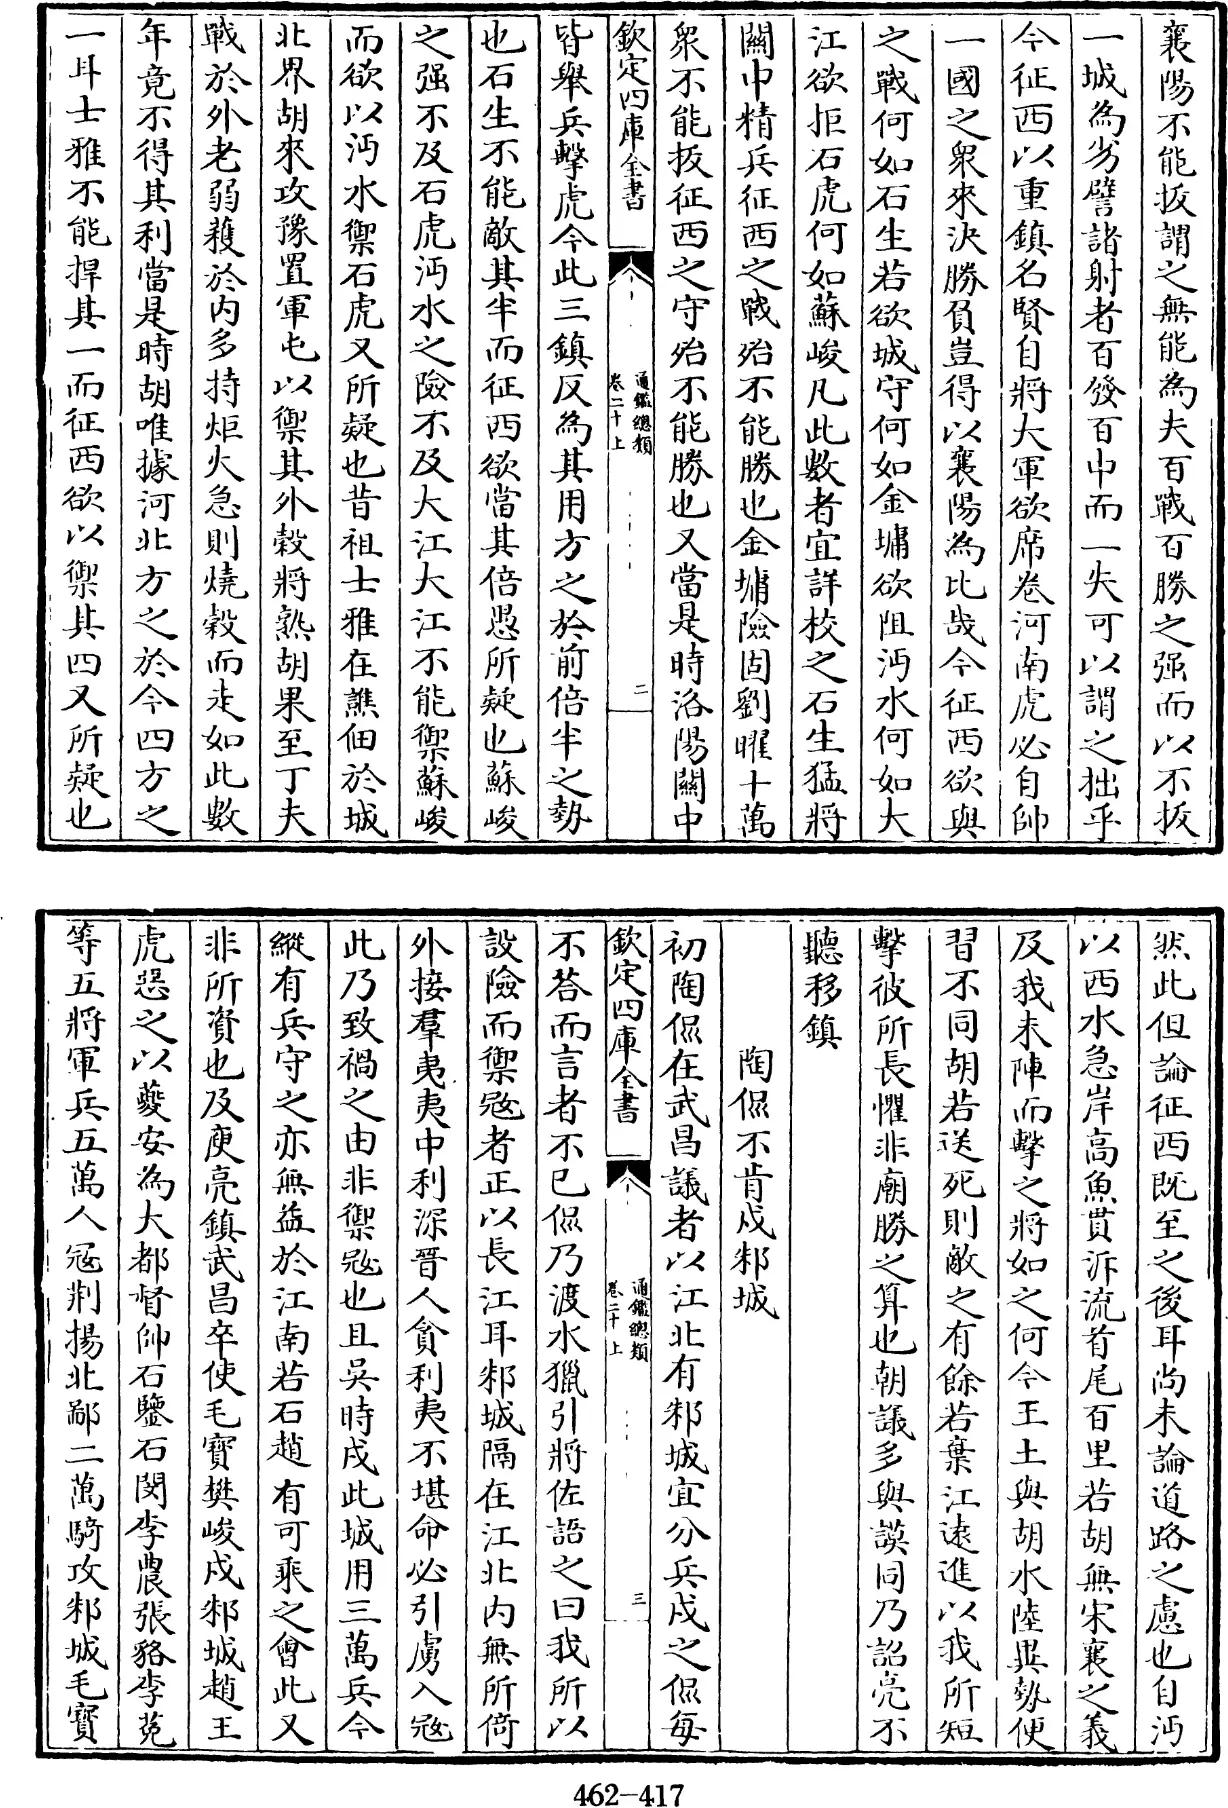 襄陽不能拔謂之無能為夫百戰百勝之强而以不拔
一城為劣譬諸射者百發百中而一失可以謂之拙乎
今征西以重鎮名賢自將大軍欲席卷河南虎必自帥
一國之衆來決勝負豈得以襄陽為比哉今征西欲與
之戰何如石生若欲城守何如金墉欲阻沔水何如大
江欲拒石虎何如蘇峻凡此數者宜詳校之石生猛將
關中精兵征西之戰殆不能勝也金墉險固劉曜十萬
衆不能拔征西之守殆不能勝也又當是時洛陽關中
欽定四庫全書
通鑑總類
卷二十上
二
皆舉兵擊虎今此三鎮反為其用方之於前倍半之勢
也石生不能敵其半而征西欲當其倍愚所疑也蘇峻
之强不及石虎沔水之險不及大江大江不能禦蘇峻
而欲以沔水禦石虎又所疑也昔祖士雅在譙佃於城
北界胡來攻豫置軍屯以禦其外穀將熟胡果至丁夫
戰於外老弱穫於内多持炬火急則燒穀而走如此數
年竟不得其利當是時胡唯據河北方之於今四方之
一耳士雅不能捍其一而征西欲以禦其四又所疑也
然此但論征西既至之後耳尚未論道路之慮也自沔
以西水急岸高魚貫泝流首尾百里若胡無宋襄之義
及我未陣而擊之將如之何今王土與胡水陸異勢便
習不同胡若送死則敵之有餘若棄江遠進以我所短
擊彼所長懼非廟勝之算也朝議多與謨同乃詔亮不
聽移鎮
陶侃不肯戍邾城
初陶侃在武昌議者以江北有邾城宜分兵戍之侃每
欽定四庫全書
通鑑總類
卷二十上
三
不荅而言者不已侃乃渡水獵引將佐語之曰我所以
設險而禦寇者正以長江耳邾城隔在江北内無所倚
外接羣夷夷中利深晉人貪利夷不堪命必引虜入寇
此乃致禍之由非禦寇也且吳時戍此城用三萬兵今
縱有兵守之亦無益於江南若石趙有可乘之會此又
非所資也及庾亮鎮武昌卒使毛寶樊峻戍邾城趙王
虎惡之以夔安為大都督帥石鑒石閔李農張貉李菟
等五將軍兵五萬人寇荆揚北鄙二萬騎攻邾城毛寶
462-417